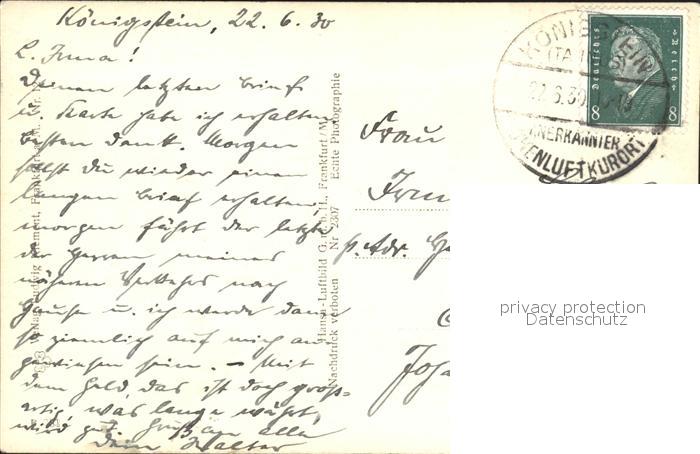 Königstein, 22. 6. 30
L. Irma!
Deinen letzten Brief
u. Karte habe ich erhalten
besten Dank. Morgen
sollst Du wieder einen
langen Brief erhalten
morgen fährt der letzte
der Herren meines
näheren Verkehrs nach
Hause u. ich werde dann
so ziemlich auf mich an-
gewiesen sein. – Mit
dem Geld, das ist doch groß-
artig, was lange währt,
wird gut. Gruß an alle
Dein Walter
Hansa-Luftbild G. m. b. H., Frankfurt/M.
Nachdruck verboten Nr. 2307 Echte Photographie
Frau
Irm
p. Adr.
Joha
KÖNIGSTEIN
(TAUNUS)
22.6.30
ANERKANNTER
HÖHENLUFTKURORT
Deutsches Reich
8 8
privacy protection
Datenschutz